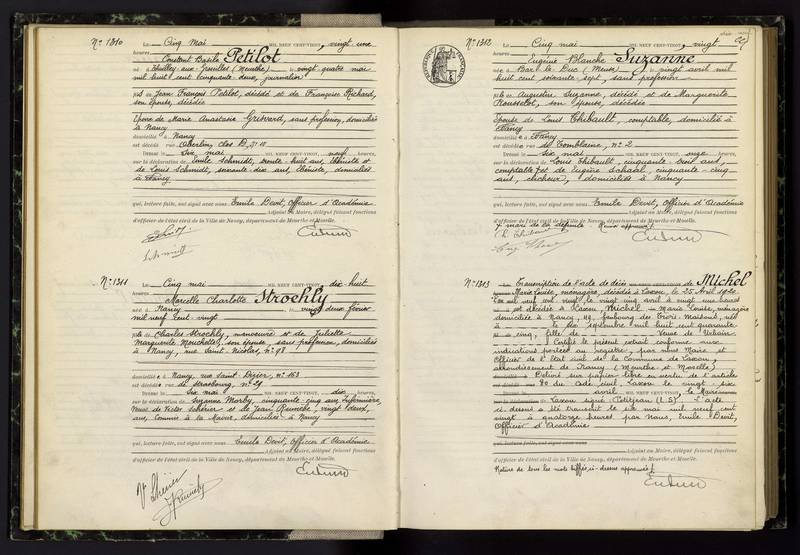 N° 1310 Le Cinq Mai MIL NEUF CENT-VINGT, vingt une
heures, Constant Basile Petitot
né à Thuilley aux Groseilles (Meurthe) le vingt quatre mai
mil huit cent cinquante deux, journalier
fils de Jean François Petitot, décédé et de Françoise Richard,
son épouse, décédée
Epoux de Marie Anastasie Grisward, sans profession, domiciliée
à Nancy
domicilié à Nancy
est décédé rue Oberlin, clos B, n° 10
Dressé le Six mai MIL NEUF CENT-VINGT, neuf heures,
sur la déclaration de Emile Schmidt, trente huit ans, ébéniste et
de Louis Schmidt, soixante-dix ans, ébéniste, domiciliés
à Nancy
qui, lecture faite, ont signé avec nous Emile Devit, Officier d'Académie
Adjoint au Maire, délégué faisant fonctions
d'officier de l'état civil de la Ville de Nancy, département de Meurthe et Moselle.
Schmidt
N° 1311 Le Cinq mai MIL NEUF CENT-VINGT, dix-huit
heures, Marcelle Charlotte Stroehly
née à Nancy le vingt deux février
mil neuf cent vingt
fille de Charles Stroehly, manoeuvre et de Juliette
Marguerite Mouchette, son épouse, sans profession, domiciliés
à Nancy, rue Saint Nicolas, n° 98
domiciliée à Nancy, rue Saint Dizier, n° 163
est décédée rue de Strasbourg, n° 29
Dressé le Six mai MIL NEUF CENT-VINGT, dix heures,
sur la déclaration de Suzanne Morby, cinquante-cinq ans, Infirmière,
Veuve de Victor Schérier et de Jean Reuniche, vingt deux
ans, Commis à la Mairie, domiciliés à Nancy
qui, lecture faite, ont signé avec nous Emile Devit, Officier d'Académie
Adjoint au Maire, délégué faisant fonctions
d'officier de l'état civil de la Ville de Nancy, département de Meurthe et Moselle.
N° 1312 Le Cinq mai MIL NEUF CENT-VINGT, vingt
heures, Eugénie Blanche Suzanne
née à Bar le Duc (Meuse) le vingt avril mil
huit cent soixante sept, sans profession
fille de Augustin Suzanne, décédé et de Marguerite
Rousselot, son épouse, décédée
Epouse de Louis Thibault, comptable, domicilié à
Nancy
domiciliée à Nancy
est décédée rue de Tomblaine, n° 2
Dressé le Six mai MIL NEUF CENT-VINGT, onze heures,
sur la déclaration de Louis Thibault, cinquante trois ans,
comptable et de Eugène Schaal, cinquante-cinq
ans, clicheur, domiciliés à Nancy
qui, lecture faite, ont signé avec nous Emile Devit, Officier d'Académie
Adjoint au Maire, délégué faisant fonctions
d'officier de l'état civil de la Ville de Nancy, département de Meurthe et Moselle.
mari de la défunte. Renvoi approuvé
L. Thibault
N° 1313 Transcription de l'acte de décès de Michel
Marie Louise, ménagère, décédée à Laxou, le 25 Avril 1920
L'an mil neuf cent vingt, le vingt cinq avril à vingt une heures
est décédée à Laxou, Michel Marie Louise, ménagère
domiciliée à Nancy, faubourg des Trois Maisons, née
à le dix septembre mil huit cent quarante
cinq, fille de Veuve de Urbain
Certifié le présent extrait conforme aux
indications portées au registre, par nous Maire et
Officier de l'Etat civil de la Commune de Laxou,
arrondissement de Nancy (Meurthe et Moselle)
Délivré sur papier libre en vertu de l'article
80 du Code civil. Laxou le vingt six
avril le Maire
de Laxou signé: Petitjean (L.S) L'acte
ci-dessus a été transcrit le six mai mil neuf cent
vingt à quatorze heures par nous, Emile Devit,
Officier d'Académie
qui, lecture faite, ont signé avec nous
Adjoint au Maire, délégué faisant fonctions
d'officier de l'état civil de la Ville de Nancy, département de Meurthe et Moselle.
Rature de tous les mots biffés ci-dessus approuvée